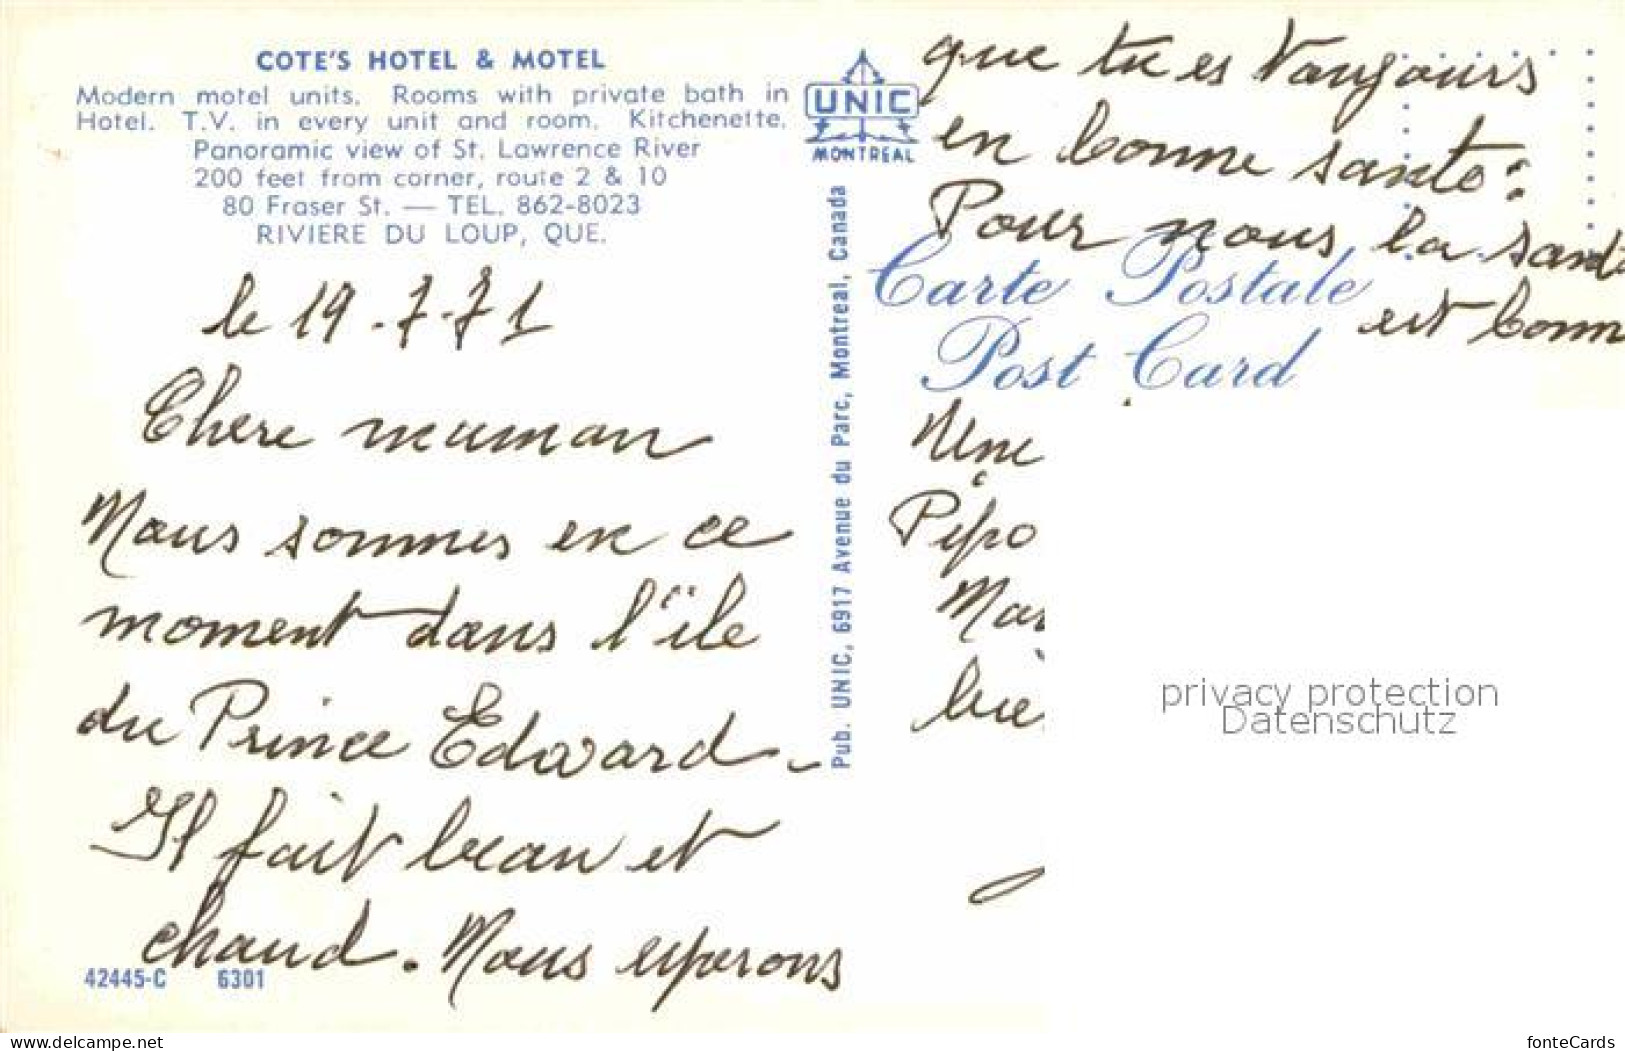 COTE'S HOTEL & MOTEL
Modern motel units. Rooms with private bath in
Hotel. T.V. in every unit and room. Kitchenette.
Panoramic view of St. Lawrence River
200 feet from corner, route 2 & 10
80 Fraser St. — TEL. 862-8023
RIVIERE DU LOUP, QUE.
le 19.7.71
Chere maman
Nous sommes en ce
moment dans l'ïle
du Prince Edward -
Il fait beau et
chaud. Nous esperons
42445-C 6301
UNIC
MONTREAL
Pub. UNIC, 6917 Avenue du Parc, Montreal, Canada
que tu es Toujours
en bonne sante:
Pour nous la sante
est bonn
Carte Postale
Post Card
Une
Pipo
Mar
bie
privacy protection
Datenschutz
www.delcampe.net
fonteCards